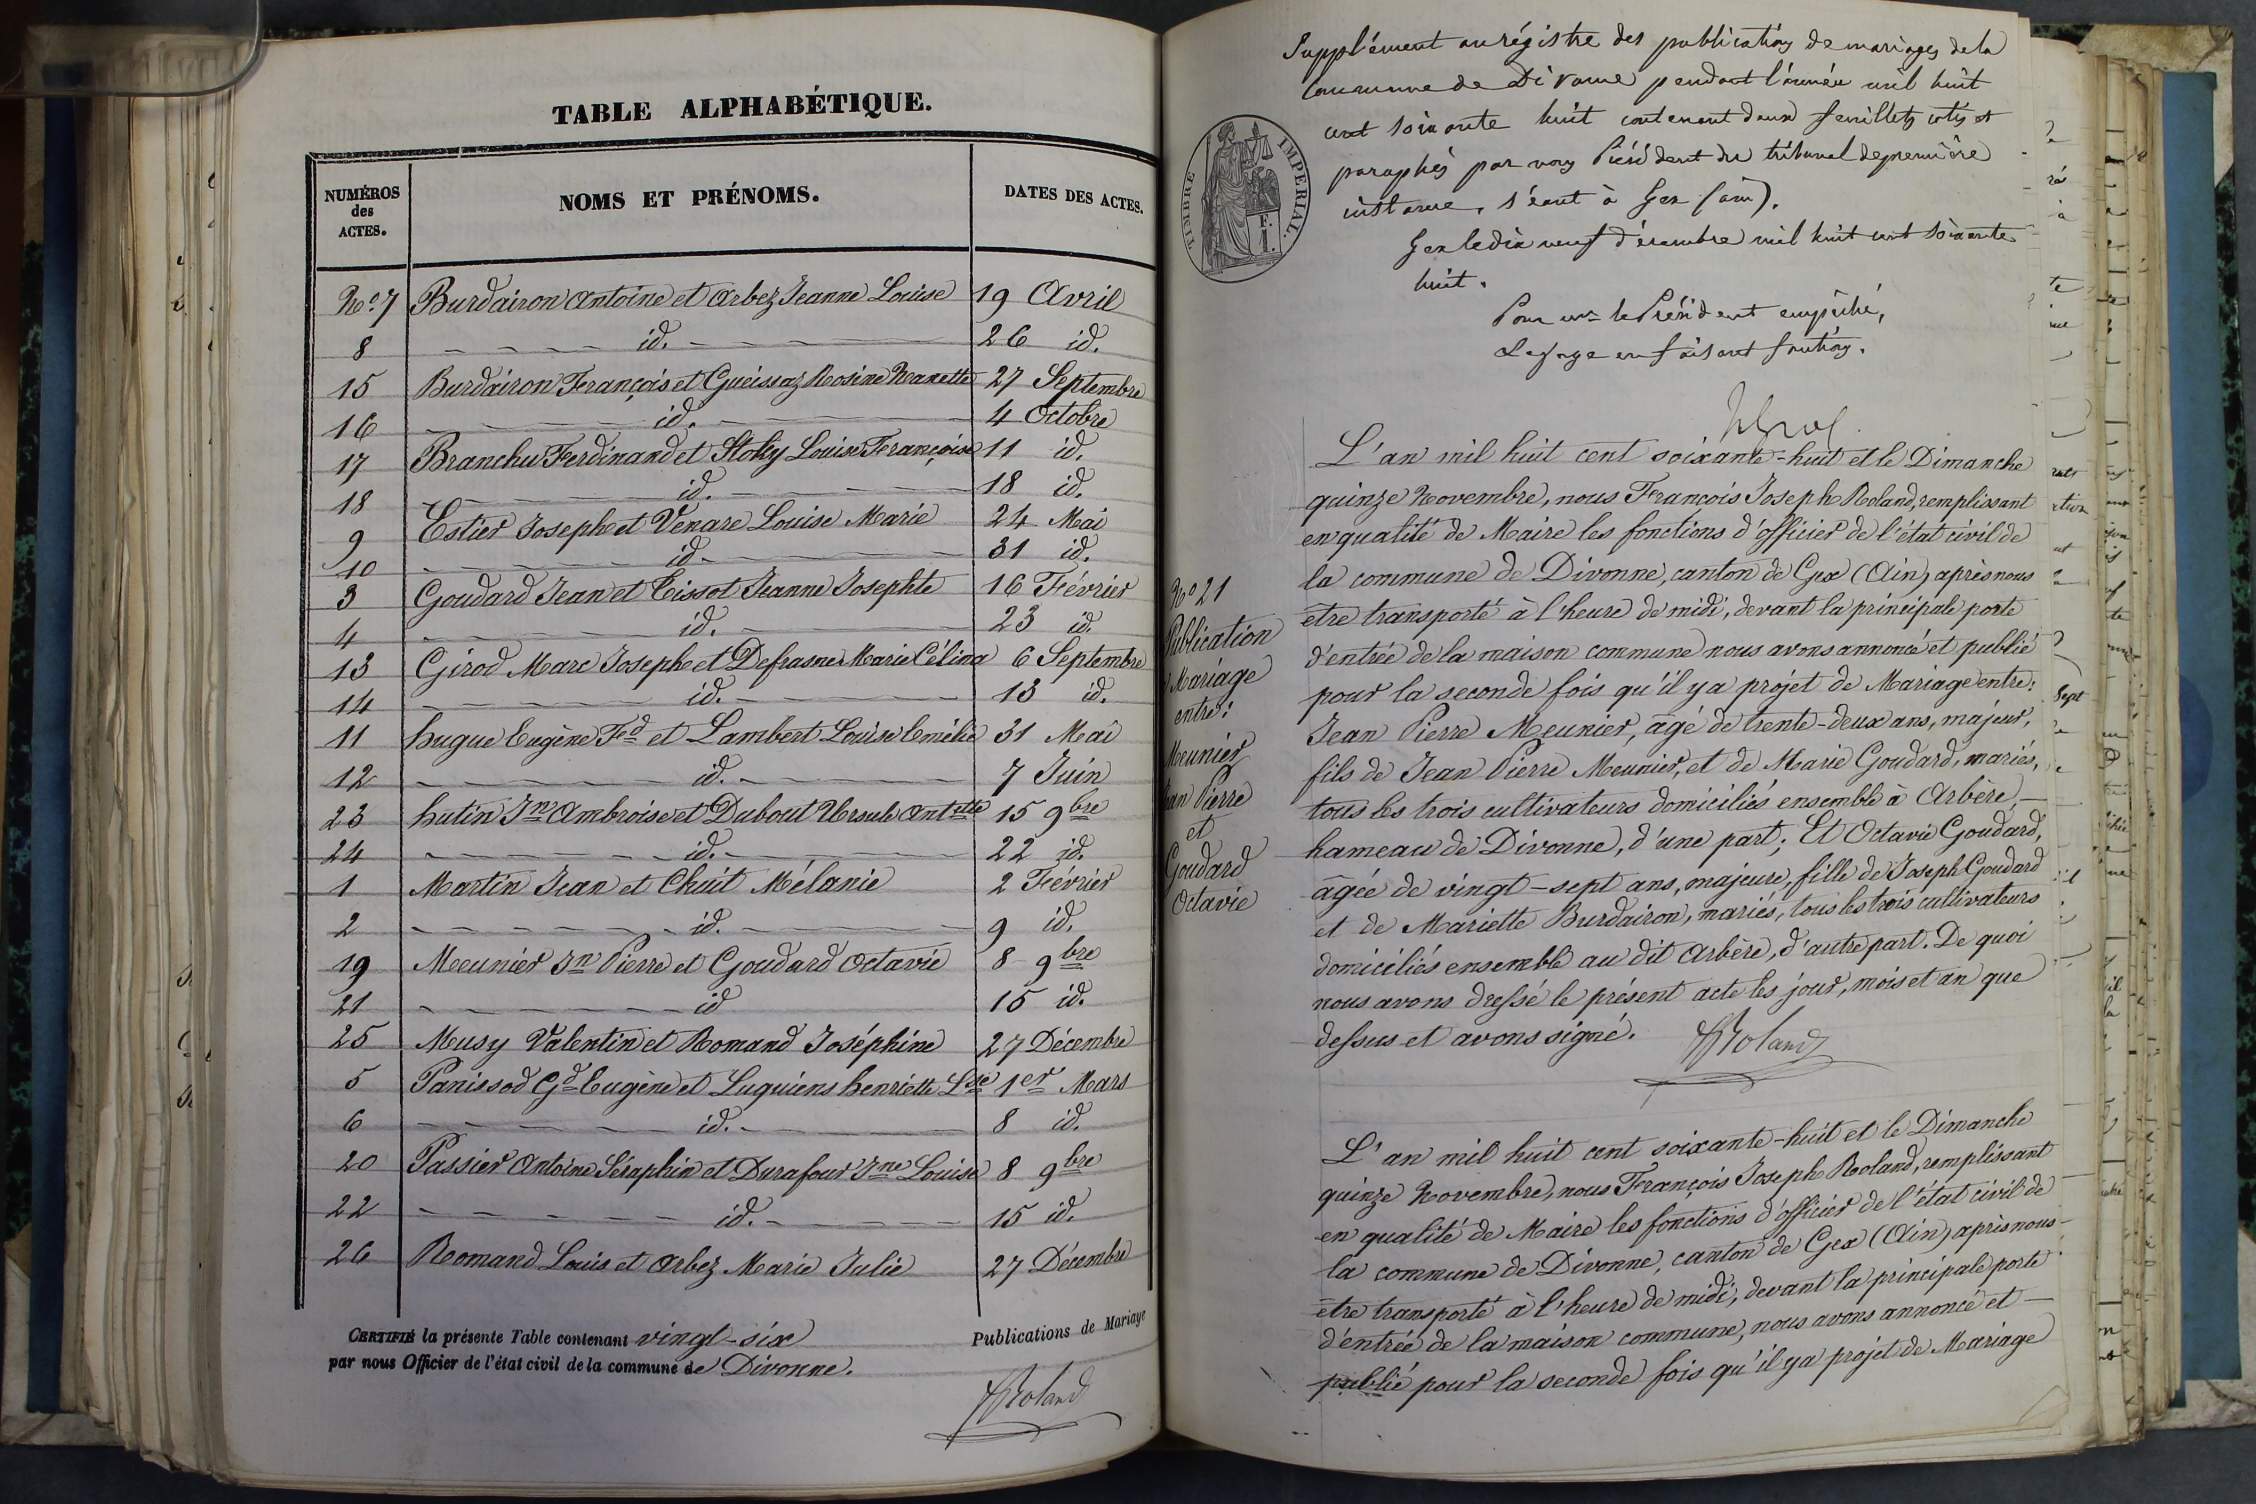 TABLE ALPHABÉTIQUE.
NUMÉROS des ACTES. NOMS ET PRÉNOMS. DATES DES ACTES.
No. 7 Burdairon Antoine et Arbez Jeanne Louise 19 Avril
8 id. 26 id.
15 Burdairon François et Gueissaz Rosine Nanette 27 Septembre
16 id. 4 Octobre
17 Branchu Ferdinand et Stoky Louise Françoise 11 id.
18 id. 18 id.
9 Estier Joseph et Venare Louise Marie 24 Mai
10 id. 31 id.
3 Goudard Jean et Tissot Jeanne Josephte 16 Février
4 id. 23 id.
13 Girod Marc Joseph et Defrasnes Marie Célina 6 Septembre
14 id. 13 id.
11 hugue Eugène Fd et Lambert Louise Emélie 31 Mai
12 id. 7 Juin
23 hutin Jn Ambroise et Dubout Ursule Antntte 15 9bre
24 id. 22 id.
1 Martin Jean et Chuit Mélanie 2 Février
2 id. 9 id.
19 Meunier Jn Pierre et Goudard Octavie 8 9bre
21 id 15 id.
25 Musy Valentin et Romand Joséphine 27 Décembre
5 Panissod Gd Eugène et Luguiens henriette Lse 1er Mars
6 id. 8 id.
20 Passier Antoine Séraphin et Durafour Jne Louise 8 9bre
22 id. 15 id.
26 Romand Louis et Arbez Marie Julie 27 Décembre
CERTIFIÉ la présente Table contenant vingt-six Publications de Mariage
par nous Officier de l'état civil de la commune de Divonne.
JRoland
Supplément au régistre des publications de mariages de la
Commune de Divonne pendant l'année mil huit
cent soixante huit contenant deux feuillets cotés et
paraphés par nous Président du tribunal de première
instance, séant à Gex (ain).
Gex le dix neuf décembre mil huit cent soixante
huit.
Pour mr le Président empêché,
Le juge en faisant fonctions.
TIMBRE IMPÉRIAL.
L'an mil huit cent soixante-huit et le Dimanche
quinze Novembre, nous François Joseph Roland, remplissant
en qualité de Maire les fonctions d'officier de l'état civil de
la commune de Divonne, canton de Gex (Ain) après nous
être transporté à l'heure de midi, devant la principale porte
d'entrée de la maison commune nous avons annoncé et publié
pour la seconde fois qu'il y a projet de Mariage entre:
Jean Pierre Meunier, âgé de trente-deux ans, majeur,
fils de Jean Pierre Meunier, et de Marie Goudard, mariés,
tous les trois cultivateurs domiciliés ensemble à Arbère,
hameau de Divonne, d'une part; Et Octavie Goudard,
âgée de vingt-sept ans, majeure, fille de Joseph Goudard
et de Mariette Burdairon, mariés, tous les trois cultivateurs
domiciliés ensemble au dit Arbère, d'autre part. De quoi
nous avons dressé le présent acte les jour, mois et an que
dessus et avons signé. JRoland
No 21
Publication
Mariage
entre:
Meunier
Jean Pierre
et
Goudard
Octavie
L'an mil huit cent soixante-huit et le Dimanche
quinze Novembre, nous François Joseph Roland, remplissant
en qualité de Maire les fonctions d'officier de l'état civil de
la commune de Divonne, canton de Gex (Ain) après nous
être transporté à l'heure de midi, devant la principale porte
d'entrée de la maison commune, nous avons annoncé et
publié pour la seconde fois qu'il y a projet de Mariage